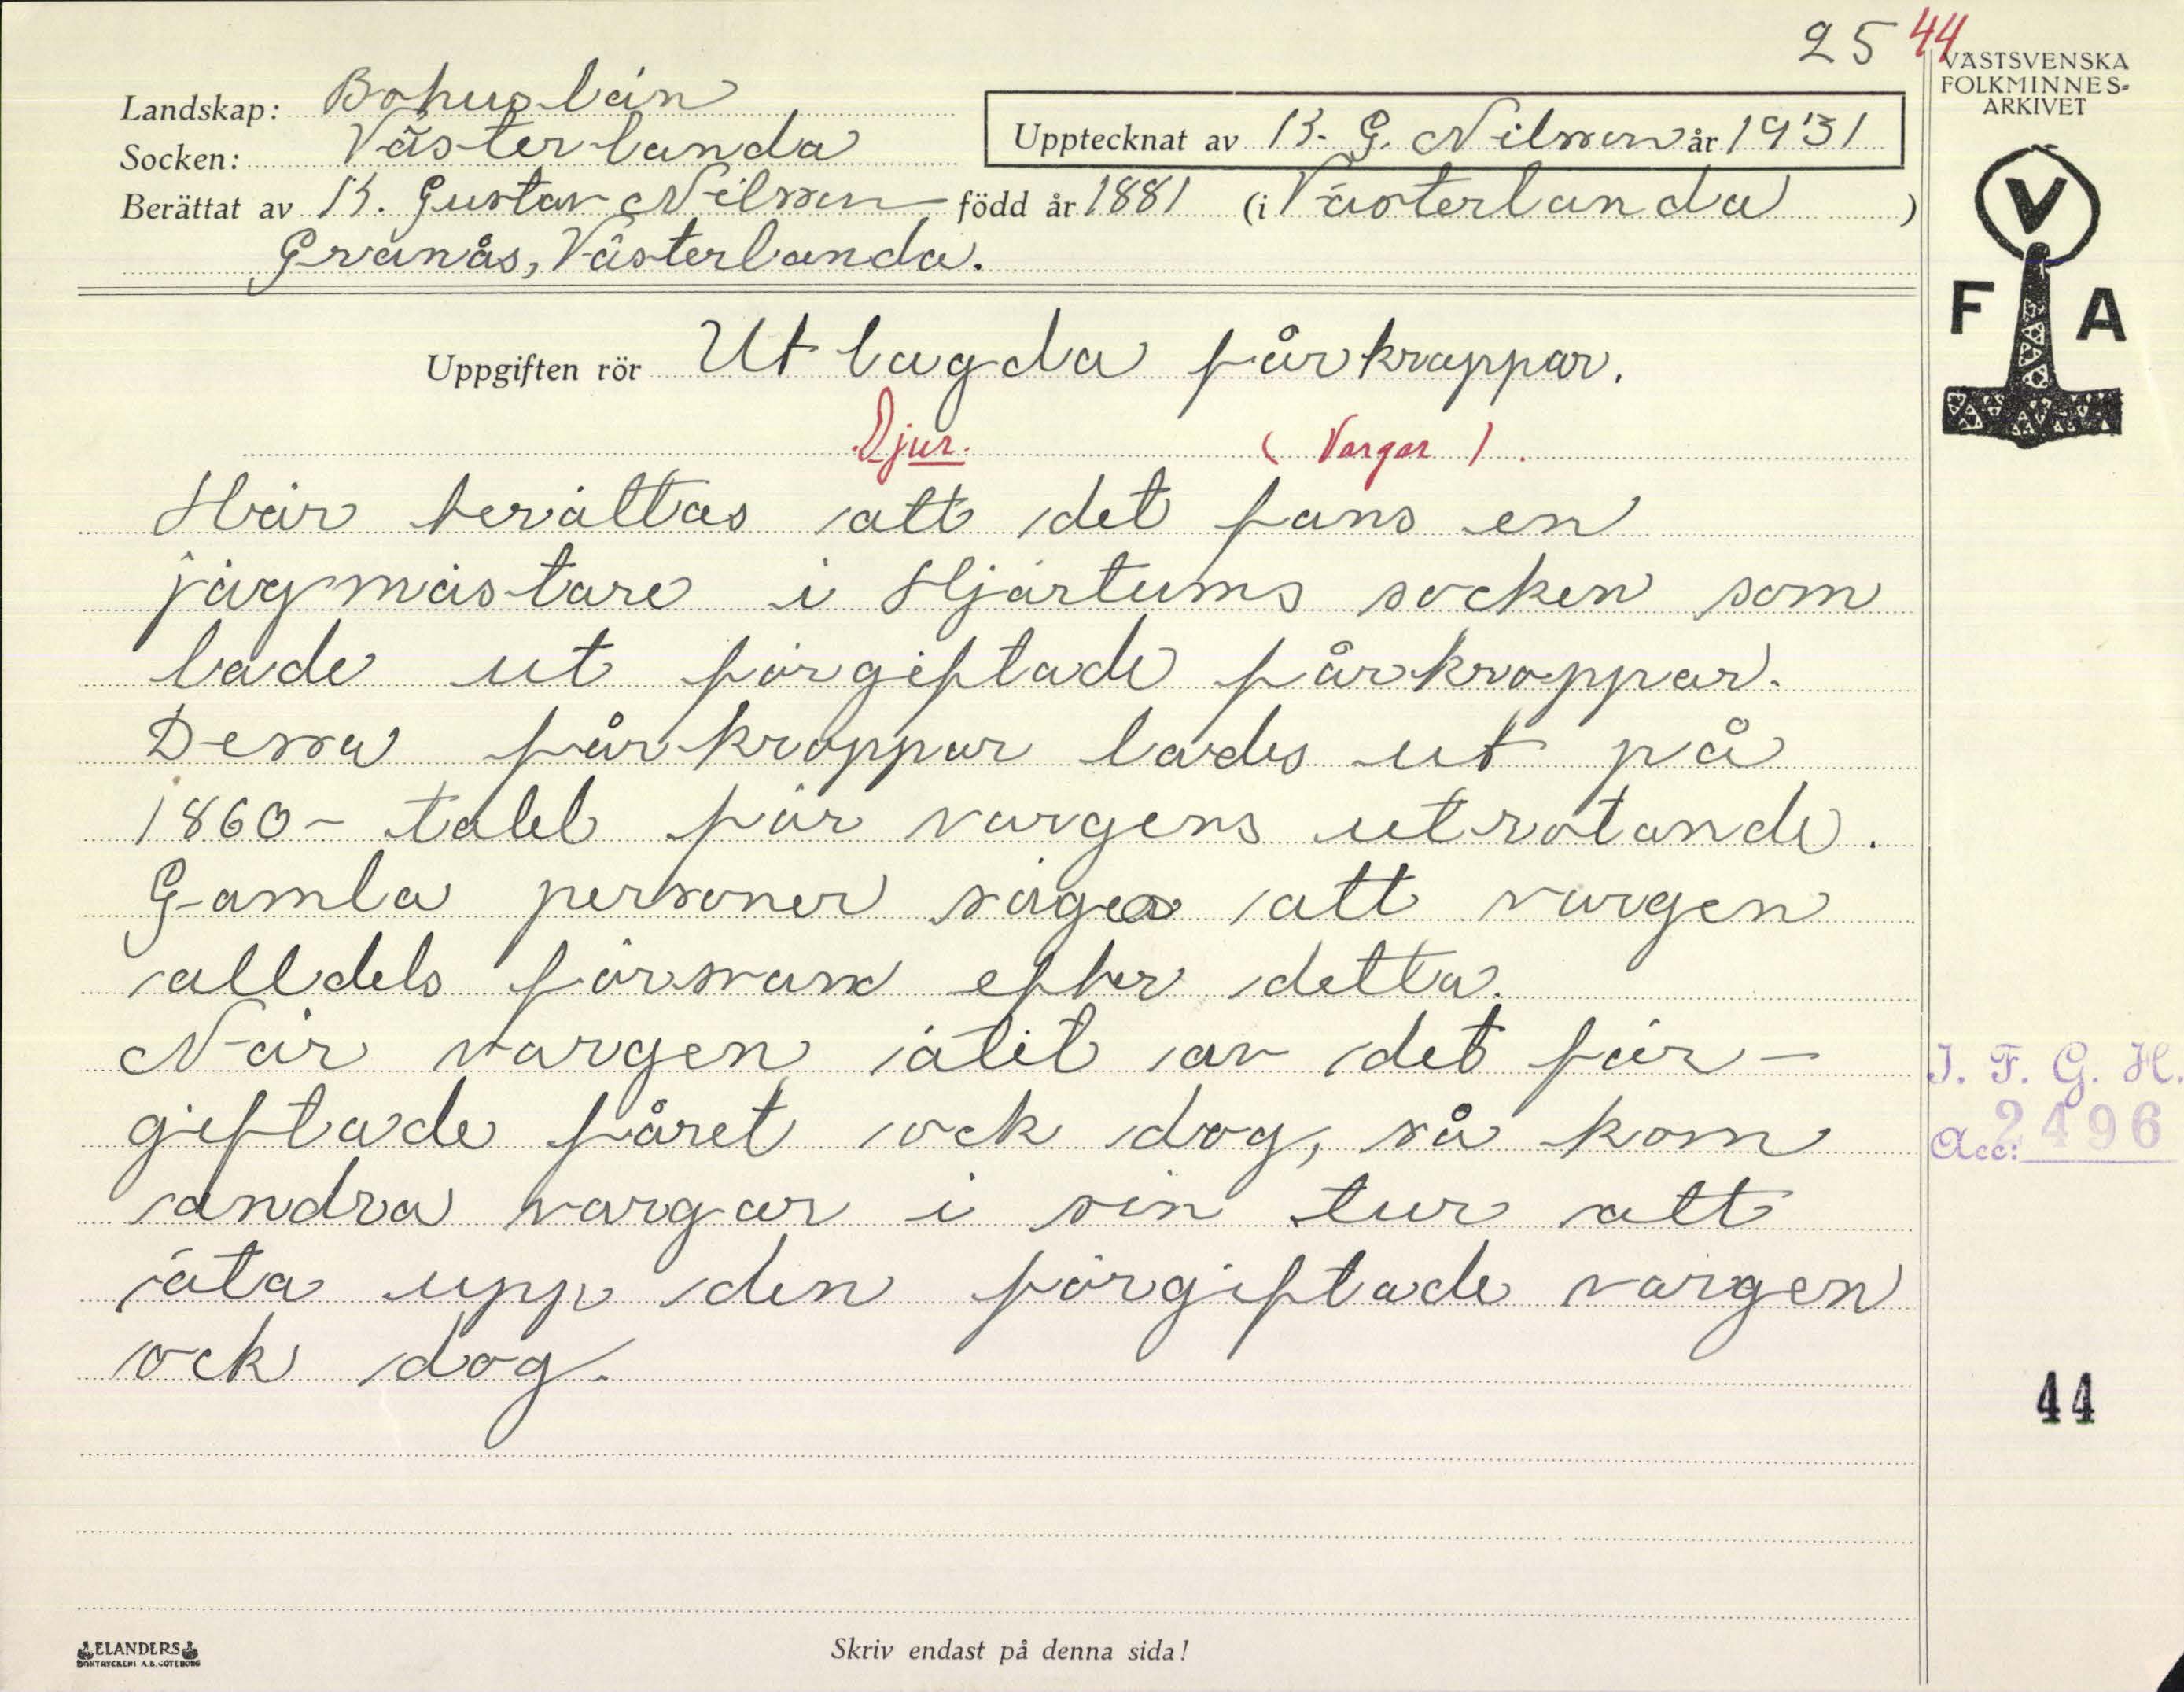 25 44
VÄSTSVENSKA
FOLKMINNES-
ARKIVET
Landskap: Bohuslän
Socken: Västerlanda
Upptecknat av B. G. Nilsson år 1931
Berättat av B. Gustav Nilsson född år 1881 (i Västerlanda)
Granås, Västerlanda.
V
F A
Uppgiften rör Utlagda fårkroppar.
Djur. (Vargar).
Här berättas att det fans en
jägmästare i Hjärtums socken som
lade ut förgiftade fårkroppar.
Dessa fårkroppar lades ut på
1860-talel för vargens utrotande.
Gamla personer säger att vargen
alldels försvann efter detta.
När vargen ätit av det för-
giftade fåret ock dog, så kom
andra vargar i sin tur att
äta upp den förgiftade vargen
ock dog.
I. F. G. H.
Acc: 2496
44
ELANDERS
BOKTRYCKERI A.B. GÖTEBORG
Skriv endast på denna sida!